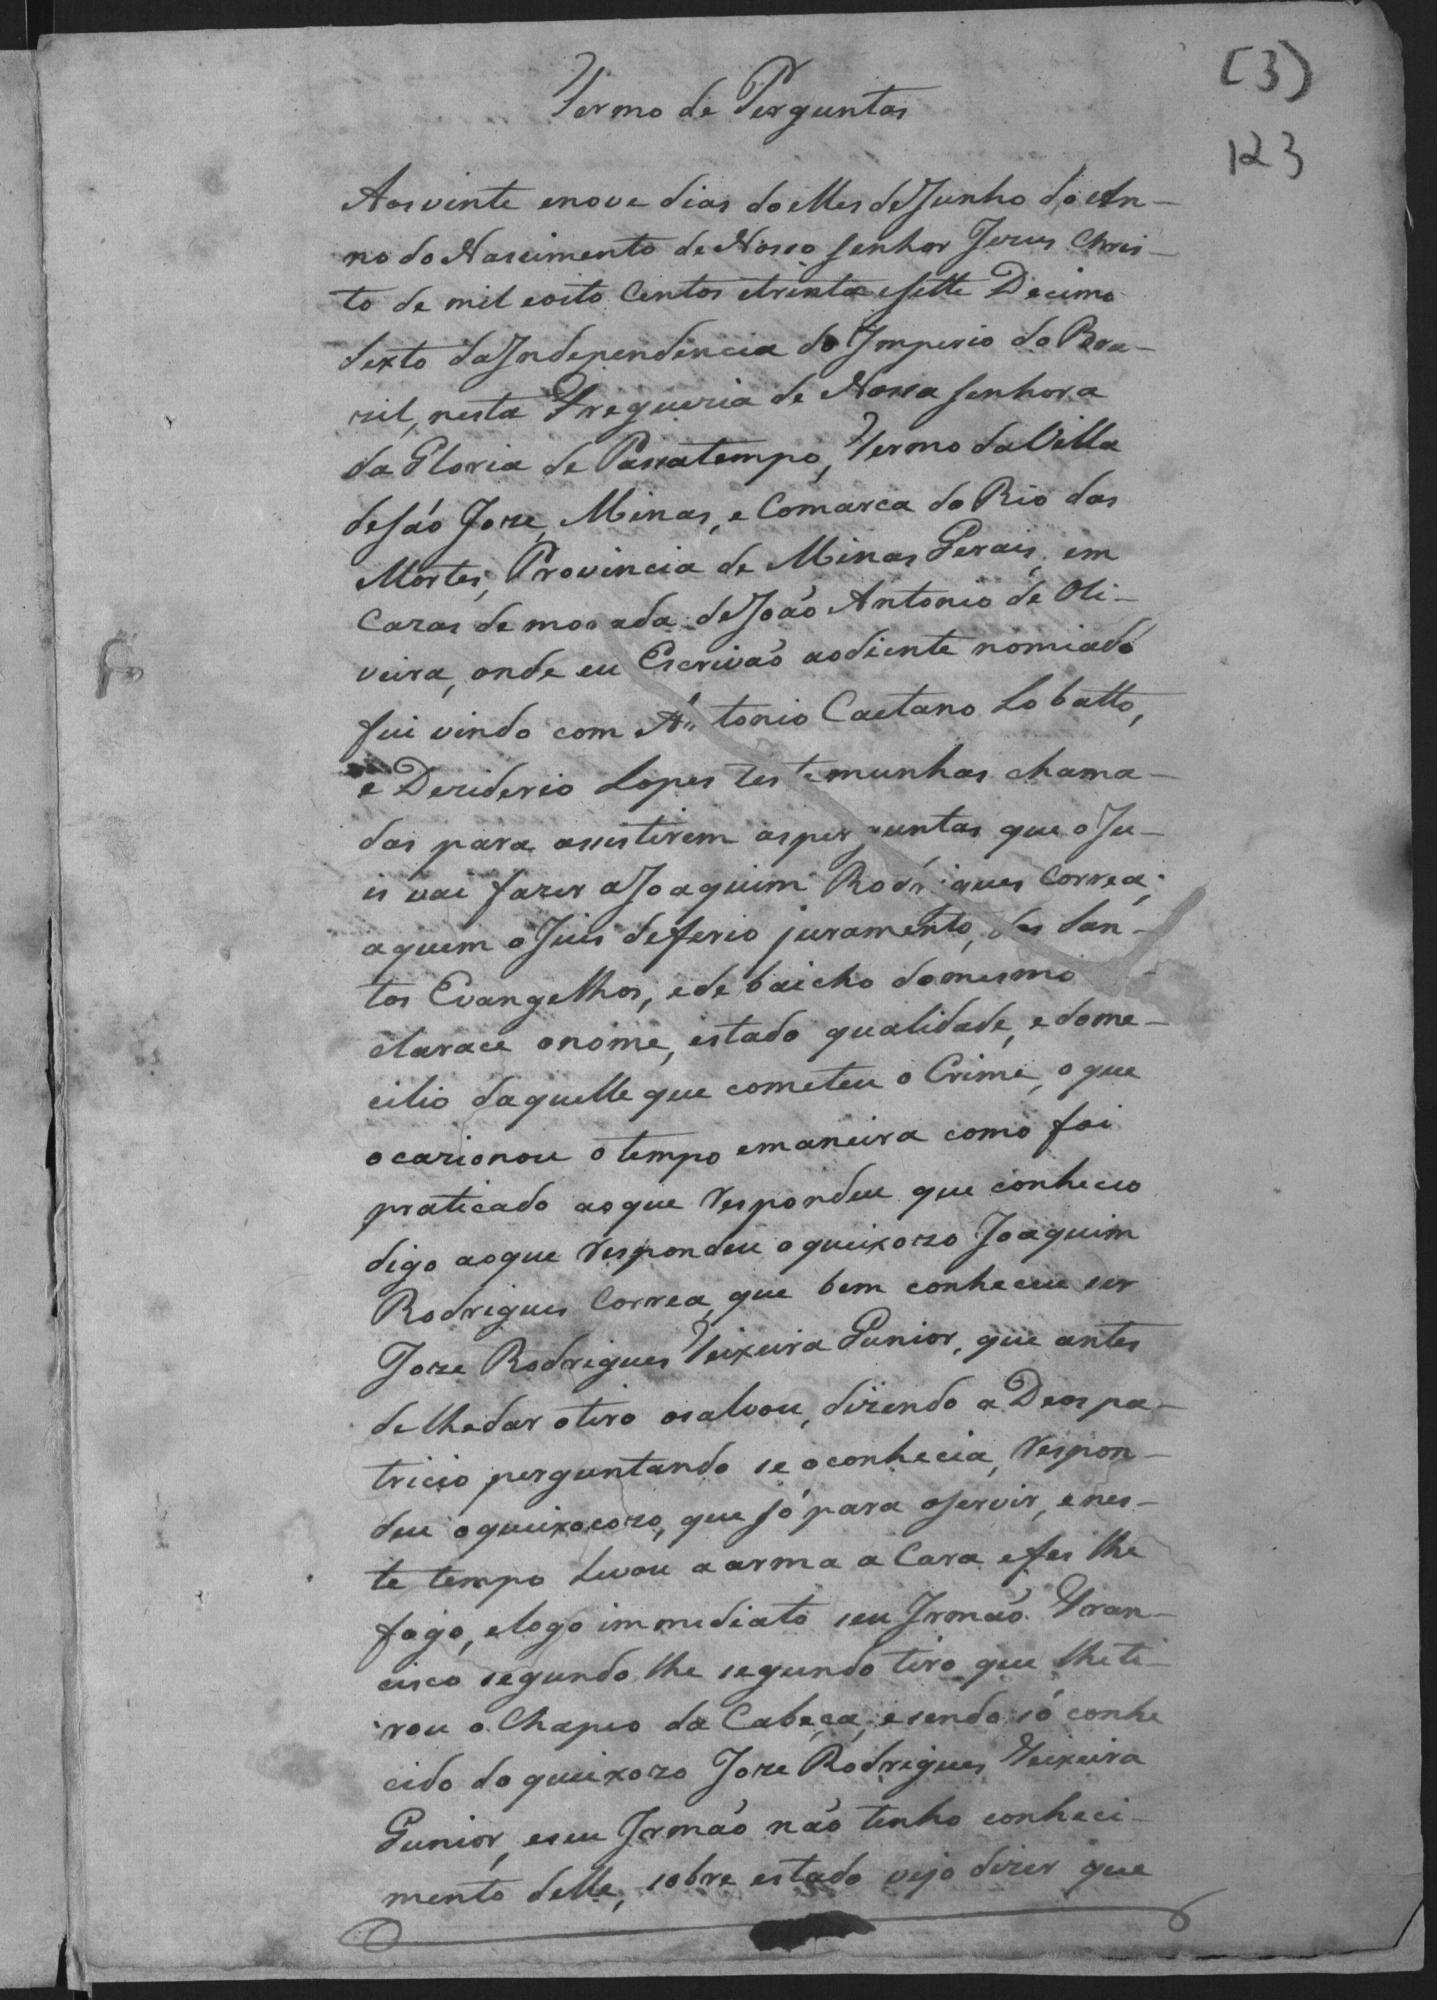 (3)
123
Termo de Perguntas
Aos vinte enove dias do Mes de Junho do An-
no do Nascimento de Nosso Senhor Jezus Chris-
to de mil eoito Centos etrinta esette Decimo
Sexto da Independencia do Imperio do Bra-
zil, nesta Fregueria de Nossa Senhora
da Gloria de Passatempo, Termo da Villa
de São Joze, Minas, e Comarca do Rio das
Mortes, Provincia de Minas Gerais, em
Cazas de morada de João Antonio de Oli-
veira, onde eu Escrivão aodiente nomiado
fui vindo com Antonio Caetano Lobatto,
e Deziderio Lopes testemunhas chama-
das para assistirem asperguntas que o Ju-
is vai fazer a Joaquim Rodrigues Correa,
aquem o Juis deferio juramento, dos San-
tos Evangelhos, ede baicho domesmo
clarace onome, estado qualidade, e dome-
cilio daquelle que cometeu o Crime, o que
ocazionou o tempo emaneira como foi
praticado aoque respondeu que conheceo
digo aoque respondeu oqueixozo Joaquim
Rodrigues Correa, que bem conheceu ser
Joze Rodrigues Teixeira Gunior, que antes
delhedar otiro osalvou, dizendo a Deos pa-
tricio perguntando se oconhecia, respon-
deu oqueixocozo, que só para oservir, enes-
te tempo Levou a arma a Cara efes lhe
fogo, elogo immediato seu Irmão Fran-
cisco segundo lhe segundo tiro que lheti-
rou o Chapeo da Cabeça, esendo só conhe
cido do queixozo Joze Rodrigues Teixeira
Gunior, eseu Irmão não tenho conheci-
mento delle, sobre estado vejo dizer que